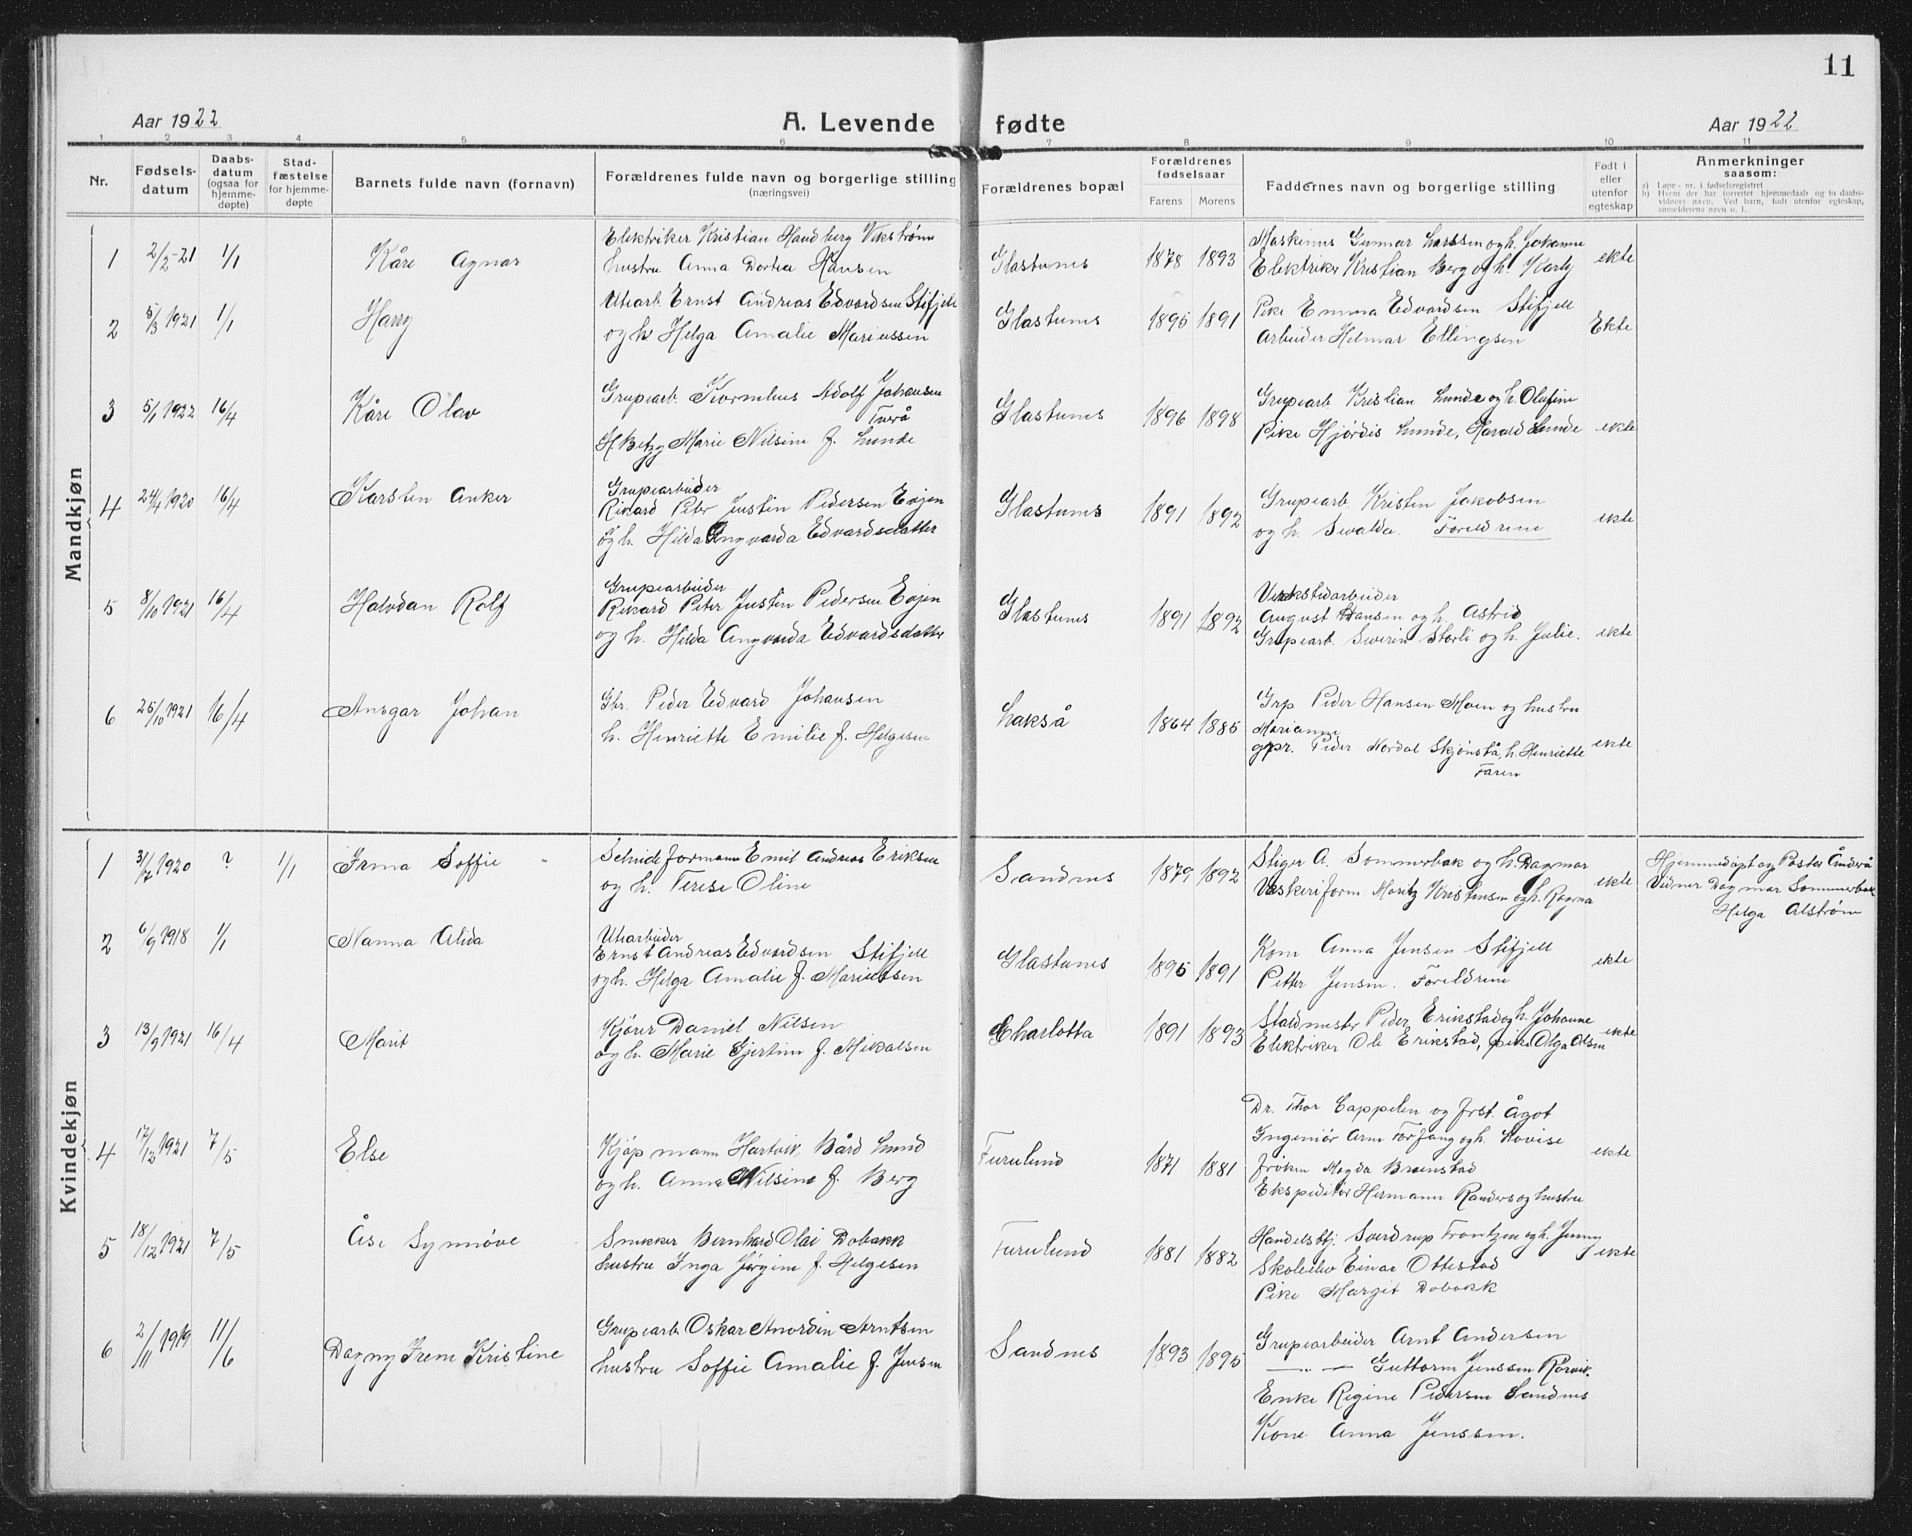 11
Aar 1922
A. Levende fødte
Aar 1922
1 2 3 4 5 6 7 8 9 10 11
Nr.
Fødsels-
datum
Daabs-
datum
(ogsaa for
hjemme-
døpte)
Stad-
fæstelse
for hjemme-
døpte
Barnets fulde navn (fornavn)
Forældrenes fulde navn og borgerlige stilling
(næringsvei)
Forældrenes bopæl
Forældrenes
fødselsaar
Farens Morens
Faddernes navn og borgerlige stilling
Født i
eller
utenfor
egteskap
Anmerkninger
saasom:
a) Løpe-nr. i fødselsregistret
b) Hvem der har forrettet hjemmedaab og to daabs-
vidners navn. Ved barn, født utenfor egteskap,
anmelderens navn o. l.
Mandkjøn
1 2/2-21 1/1 Kåre Agnar
Elektriker Kristian Handberg Vikstrøm
hustru Anna Dortea Hansen
Glastunes 1878 1893
Maskinus Gunnar Larssen og h. Johanne
Elektriker Kristian Berg og h. Karly
ekte
2 5/3 1921 1/1 Harry
Utearb. Ernst Andreas Edvardsen Stifjell
og h. Helga Amalie Mariussen
Glastunes 1895 1891
Pike Emma Edvardsen Stifjell
Arbeider Helmar Ellingsen
Ekte
3 5/1 1922 16/4 Kåre Olav
Grupearb. Kornelius Adolf Johansen
Tverå
H. Betzy Marie Nilsine f. Lunde
Glastunes 1896 1898
Grupearb Kristian Lunde og h. Olufine
Pike Hjørdis Lunde, Harald Lunde
ekte
4 24/4 1920 16/4 Karsten Anker
Grupearbeider
Rikard Peter Justin Pedersen Evjen
og h. Hilda Angvarda Edvardsdatter
Glastunes 1891 1892
Grupearb Kristen Jakobsen
og h. Sevalda. Foreldrene
ekte
5 8/10 1921 16/4 Halvdan Rolf
Grupearbeider
Rikard Peter Justin Pedersen Evjen
og h. Hilda Angvarda Edvardsdatter
Glastunes 1891 1892
Verkstedarbeider
August Hansen og h. Astrid
Grupearb. Severin Storli og h. Julie.
ekte
6 25/10 1921 16/4 Ansgar Johan
Gbr. Peder Edvard Johansen
h. Henriette Emilie f. Helgesen
Lakså 1864 1885
Grp Peder Hansen Moen og hustru
Marianne
gpr. Peder Nordal Skjønstå, h. Henriette
Faren
ekte
Kvindekjøn
1 31/7 1920 ? 1/1 Irma Soffie
Scheideformann Emil Andreas Eriksen
og h. Terese Oline
Sandnes 1879 1892
Stiger A. Sommerbak og h. Dagmar
Vaskeriform. Moritz Kristensen og h. Ragna
ekte
Hjemmedøpt av Pastor Ånderå
Vidner Dagmar Sommerbak
Helga Alstrøm
2 6/9 1918 1/1 Nanna Alida
Utearbeider
Ernst Andreas Edvardsen Stifjell
og h. Helga Amalie f. Mariussen
Glastunes 1895 1891
Kone Anna Jensen Stifjell
Petter Jensen. Foreldrene
ekte
3 13/9 1921 16/4 Marit
Kjører Daniel Nilsen
og h. Marie Gjertine f. Mikalsen
Charlotta 1891 1893
Staldmester Peder Erikstad og h. Johanne
Elektriker Ole Erikstad, pike Olga Olsen
ekte
4 17/12 1921 7/5 Else
Kjøpmann Hartvik Bård Lund
og h. Anna Nilsine f. Berg
Furulund 1871 1881
Dr. Thor Cappelen og frst. Ågot
Ingeniør Arne Forfang og h. Lovise
frøken Magda Brønstad
Ekspeditør Hermann Randers og hustru
ekte
5 18/12 1921 7/5 Åse Synnøve
Snekker Bernhard Olai Dobakk
hustru Inga Jørgine f. Helgesen
Furulund 1881 1882
Handelsbtj. Sverdrup Frantzen og h. Jenny
Skoleelev Einar Ottestad
Pike Margit Dobakk
ekte
6 2/11 1919 11/6 Dagny Irene Kristine
Grupearb. Oskar Anordin Arntsen
hustru Soffie Amalie f. Jensen
Sandnes 1893 1895
Grupearbeider Arnt Andersen
— " — Guttorm Jenssen Rørvik.
Enke Regine Pedersen Sandnes
Kone Anna Jenssen.